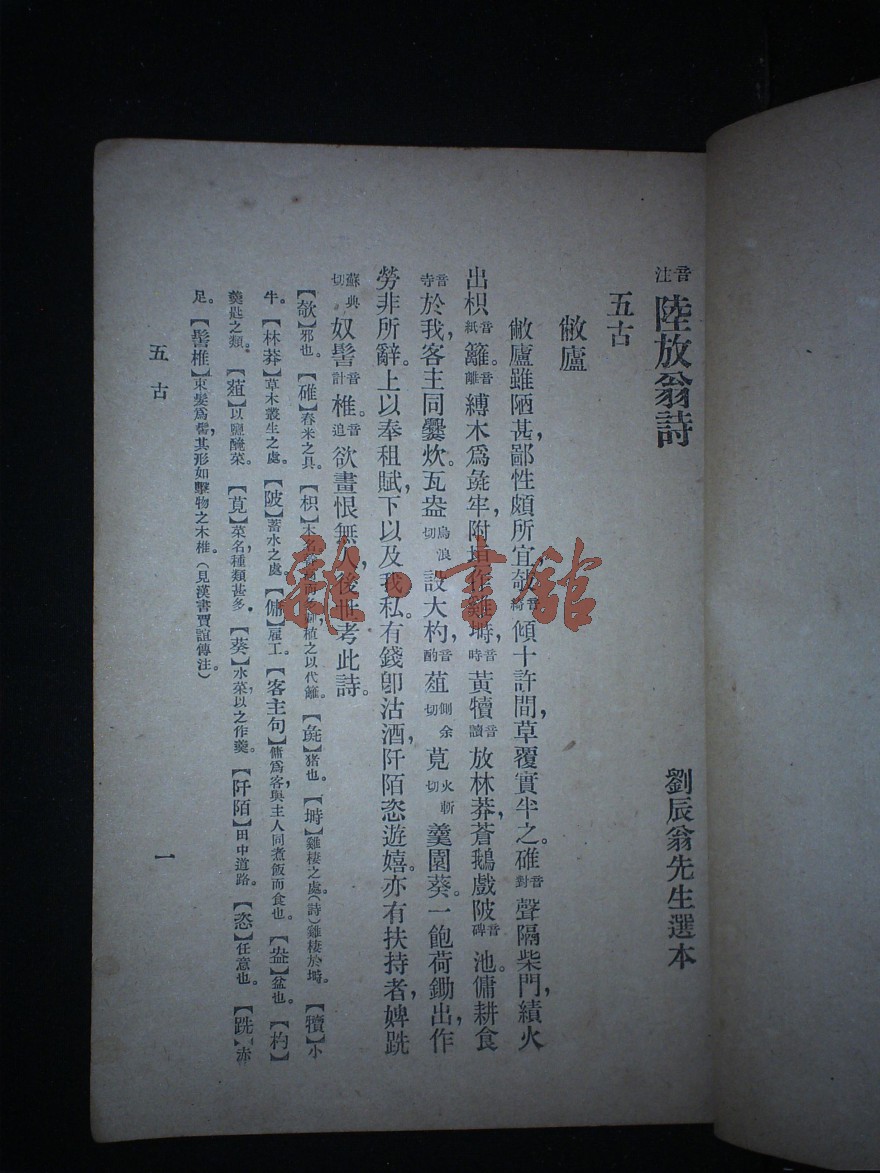 音注 陸放翁詩
劉辰翁先生選本
五古
敝廬
敝廬雖陋甚，鄙性頗所宜。欹音綺傾十許間，草覆實半之。碓音對聲隔柴門，績火
出枳音紙籬。音離縛木爲彘牢，附垣作雞塒，音時黃犢音讀放林莽，蒼鵝戲陂音碑池。傭耕食
音寺於我，客主同爨炊。瓦盎烏浪切設大杓，音酌葅側余切莧火斬切羹園葵。一飽荷鋤出，作
勞非所辭。上以奉租賦，下以及我私。有錢卽沽酒，阡陌恣遊嬉。亦有扶持者，婢跣
蘇典切奴髻音計椎。音追欲畫恨無人，後世考此詩。
【欹】邪也。【碓】舂米之具。【枳】木名，植之以代籬。【彘】猪也。【塒】雞棲之處，（詩）雞棲於塒。【犢】小
牛。【林莽】草木叢生之處。【陂】蓄水之處【傭】雇工。【客主句】傭爲客，與主人同煮飯而食也。【盎】盆也。【杓】
羹匙之類。【葅】以鹽醃菜。【莧】菜名，種類甚多。【葵】水菜以之作羹。【阡陌】田中道路。【恣】任意也。【跣】赤
足。【髻椎】束髮爲髻，其形如擊物之木椎。（見漢書賈誼傳注）
五古
一
雜·書館